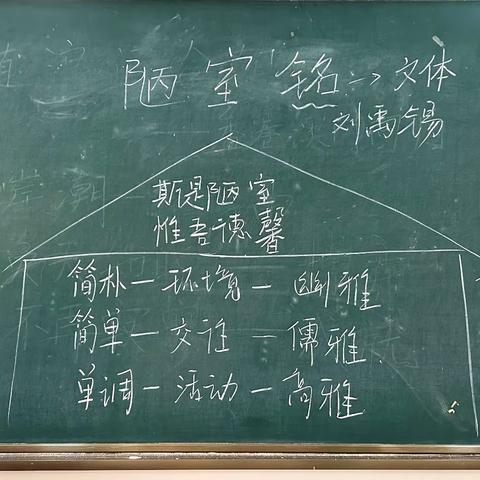 陋室铭→文体
刘禹锡
斯是陋室
惟吾德馨
简朴—环境—幽雅
简单—交往—儒雅
单调—活动—高雅